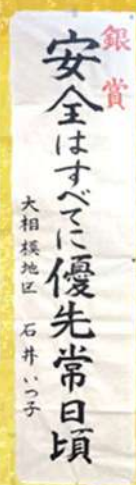 銀賞
安全はすべてに優先常日頃
大相模地区 石井いつ子